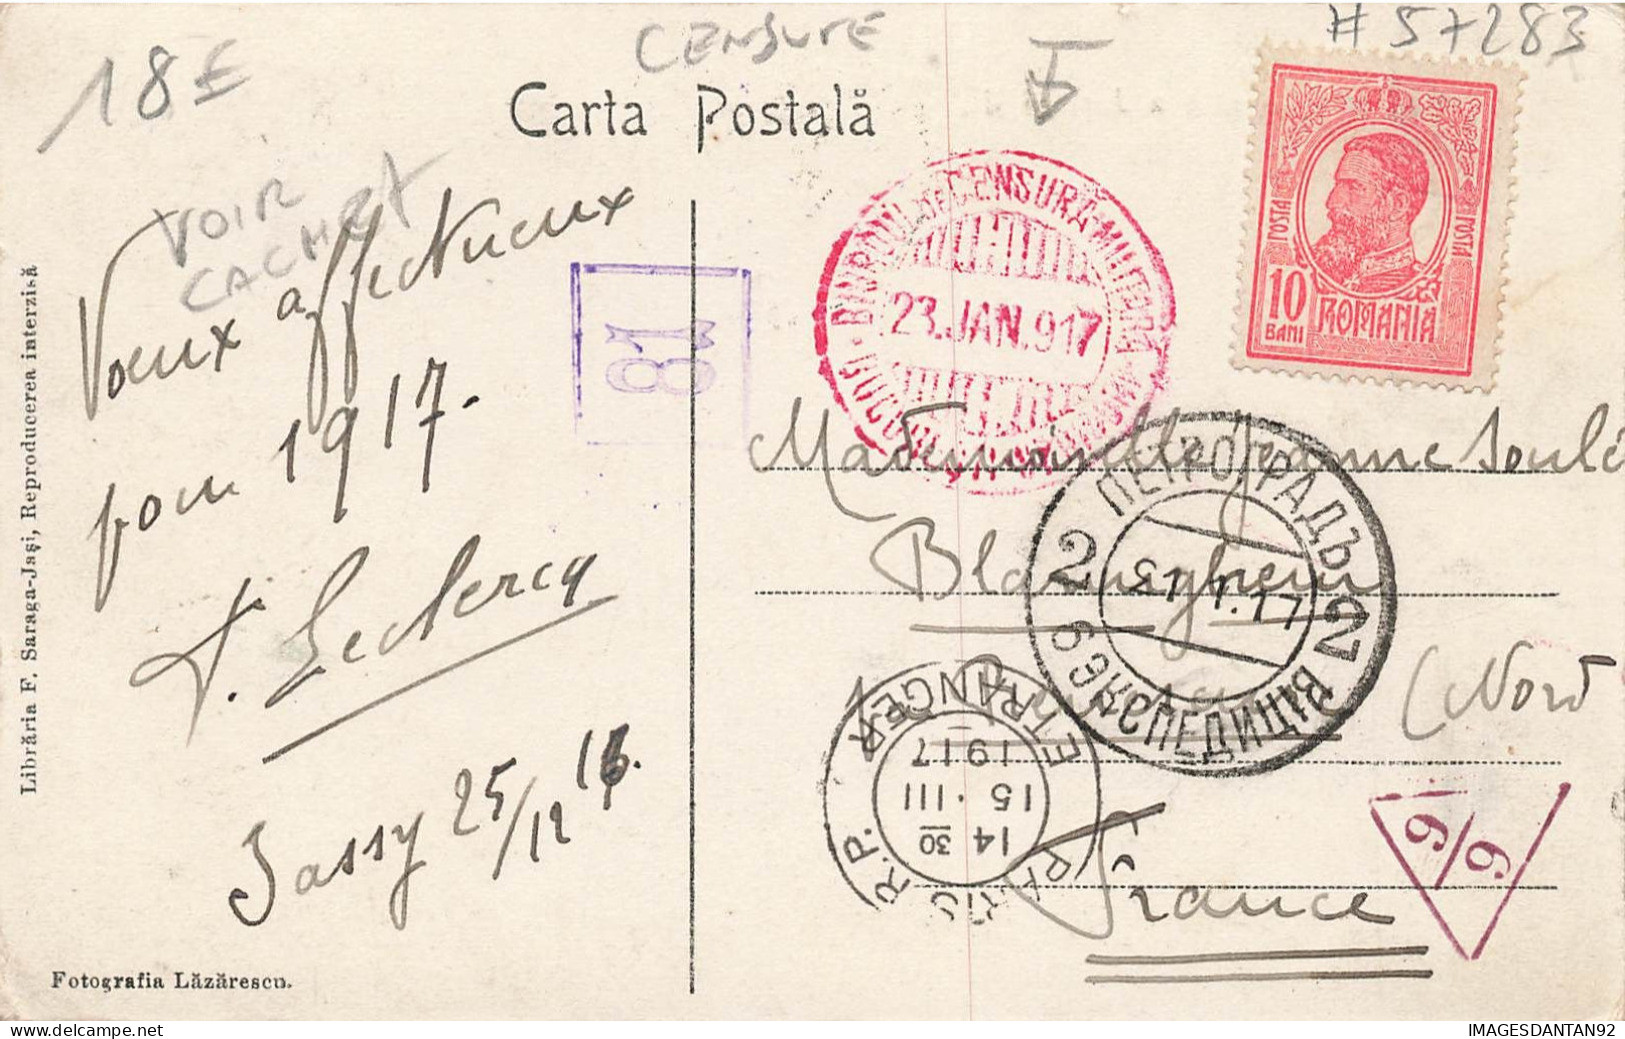 # 57283
CENSURE
18 €
Carta Postală
VOIR
CACHET
Voeux affectueux
pour 1917.
Leclercq
Jassy 25/12 16.
81
BIUROUL DE CENSURA MILITARA
23.JAN.917
POSTA POSTA
10
BANI
ROMANIA
Mademoiselle Jeanne
Blaringhem
(Nord
France
ПЕТРОГРАДЪ
2 2
31.1.17
6 ЭКСПЕДИЦІЯ
PARIS R.P. ETRANGER
14 30
15 · III
1917
6
6
Librăria F. Saraga-Jași, Reproducerea interzisă
Fotografia Lăzărescu.
IMAGESDANTAN92